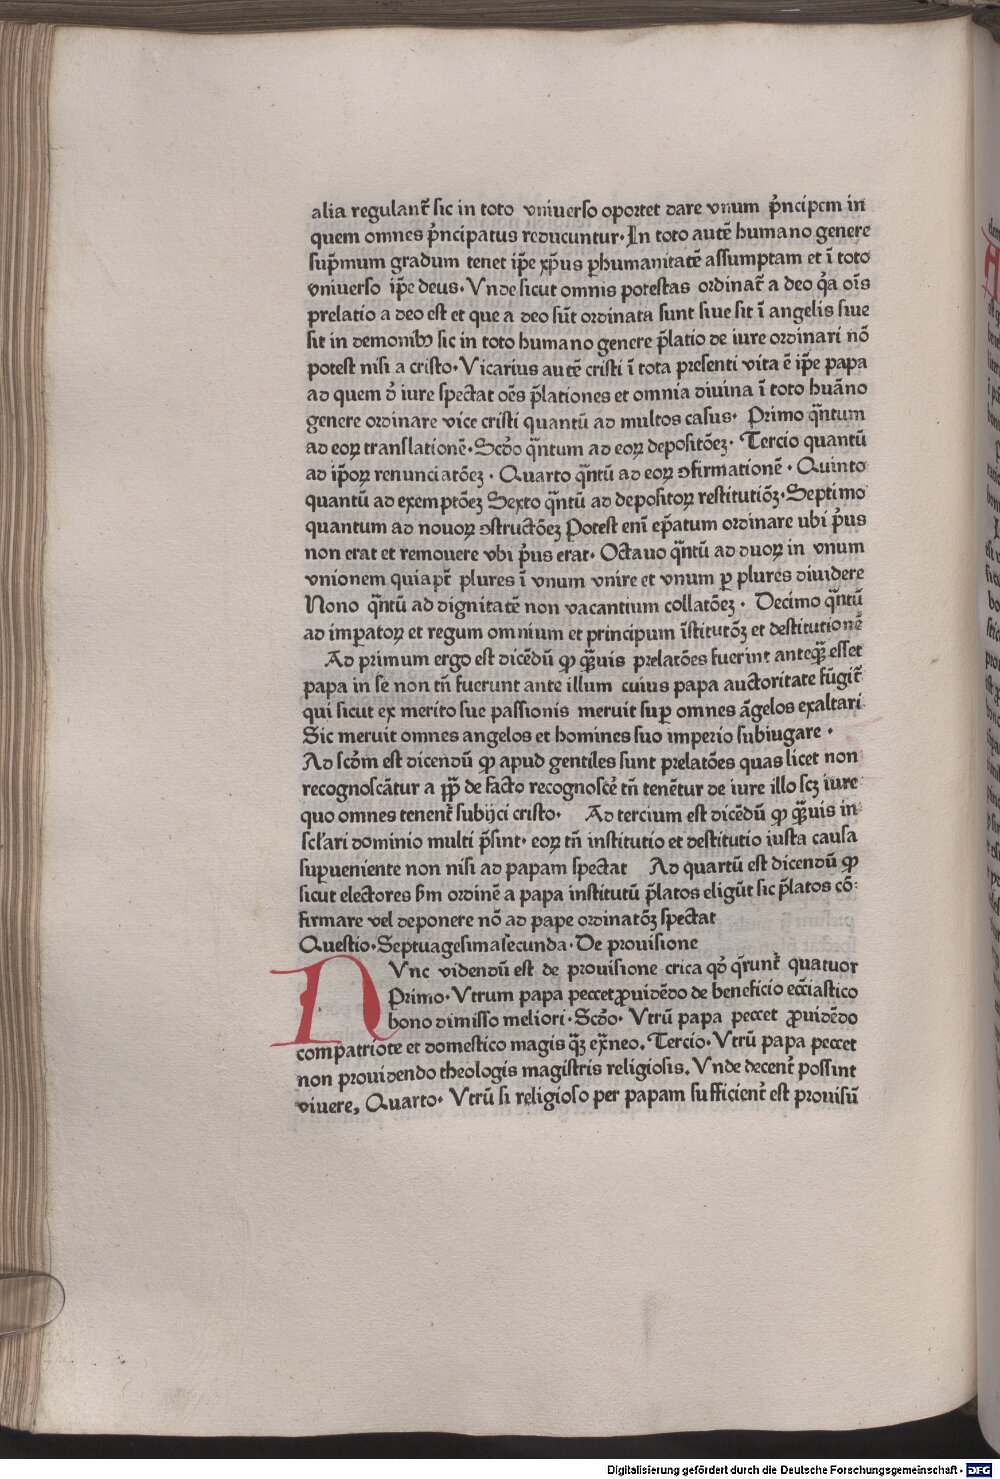 alia regulant᷑ sic in toto vniuerso oportet dare vnum p̓ncipem in
quem omnes p̓ncipatus reducuntur· In toto autē humano genere
sup̄mum gradum tenet ip̄e xp̄us ꝑ humanitatē assumptam et ī toto
vniuerso ip̄e deus· Vnde sicut omnis potestas ordinat᷑ a deo q̓a oīs
prelatio a deo est et que a deo sūt ordinata sunt siue sit ī angelis siue
sit in demonibꝫ sic in toto humano genere p̄latio de iure ordinari nō
potest nisi a cristo· Vicarius autē cristi ī tota presenti vita ē ip̄e papa
ad quem d̓ iure spectat oēs p̄lationes et omnia diuina ī toto huāno
genere ordinare vice cristi quantū ad multos casus· Primo q̄ntum
ad eoꝝ translationē· Scdo q̄ntum ad eoꝝ depositōeꝫ· Tercio quantū
ad ip̄oꝝ renunciatōeꝫ · Quarto q̄ntū ad eoꝝ ꝯfirmationē · Quinto
quantū ad exemptōeꝫ Sexto q̄ntū ad depositoꝝ restitutiōꝫ· Septimo
quantum ad nouoꝝ ꝯstructōeꝫ Potest enī ep̄atum ordinare ubi p̓us
non erat et remouere vbi p̓us erat· Octauo q̄ntū ad duoꝝ in vnum
vnionem quia pt̄ plures ī vnum vnire et vnum ꝑ plures diuidere
Nono q̄ntū ad dignitatē non vacantium collatōeꝫ · Decimo q̄ntū
ad imꝑatoꝝ et regum omnium et principum īstitutōꝫ et destitutionē
Ad primum ergo est dicēdū ꝙ qꝫ̄uis prelatōes fuerint anteqꝫ̄ esset
papa in se non tn̄ fuerunt ante illum cuius papa auctoritate fūgit᷑
qui sicut ex merito sue passionis meruit suꝑ omnes āgelos exaltari
Sic meruit omnes angelos et homines suo imperio subiugare ·
Ad scōm est dicendū ꝙ apud gentiles sunt prelatōes quas licet non
recognoscātur a pp̄ de facto recognoscē tn̄ tenētur de iure illo scꝫ iure
quo omnes tenent᷑ subijci cristo· Ad tercium est dicēdū ꝙ qꝫ̄uis in
scl̓ari dominio multi p̄sint· eoꝝ tn̄ institutio et destitutio iusta causa
suꝑueniente non nisi ad papam spectat Ad quartū est dicendū ꝙ
sicut electores ẜm ordinē a papa institutū p̄latos eligūt sic p̄latos cō-
firmare vel deponere nō ad pape ordinatōꝫ spectat
Questio· Septuagesimasecunda· De prouisione
NVnc videndū est de prouisione crica qd̓ q̄runt᷑ quatuor
Primo· Vtrum papa peccet ꝓuidēdo de beneficio ecc̄iastico
bono dimisso meliori· Scdo· Vtrū papa peccet ꝓuidēdo
compatriote et domestico magis qꝫ̄ ex̄neo. Tercio· Vtrū papa peccet
non prouidendo theologis magistris religiosis. Vnde decent᷑ possint
viuere, Quarto· Vtrū si religioso per papam sufficient᷑ est prouisū
Digitalisierung gefördert durch die Deutsche Forschungsgemeinschaft - DFG